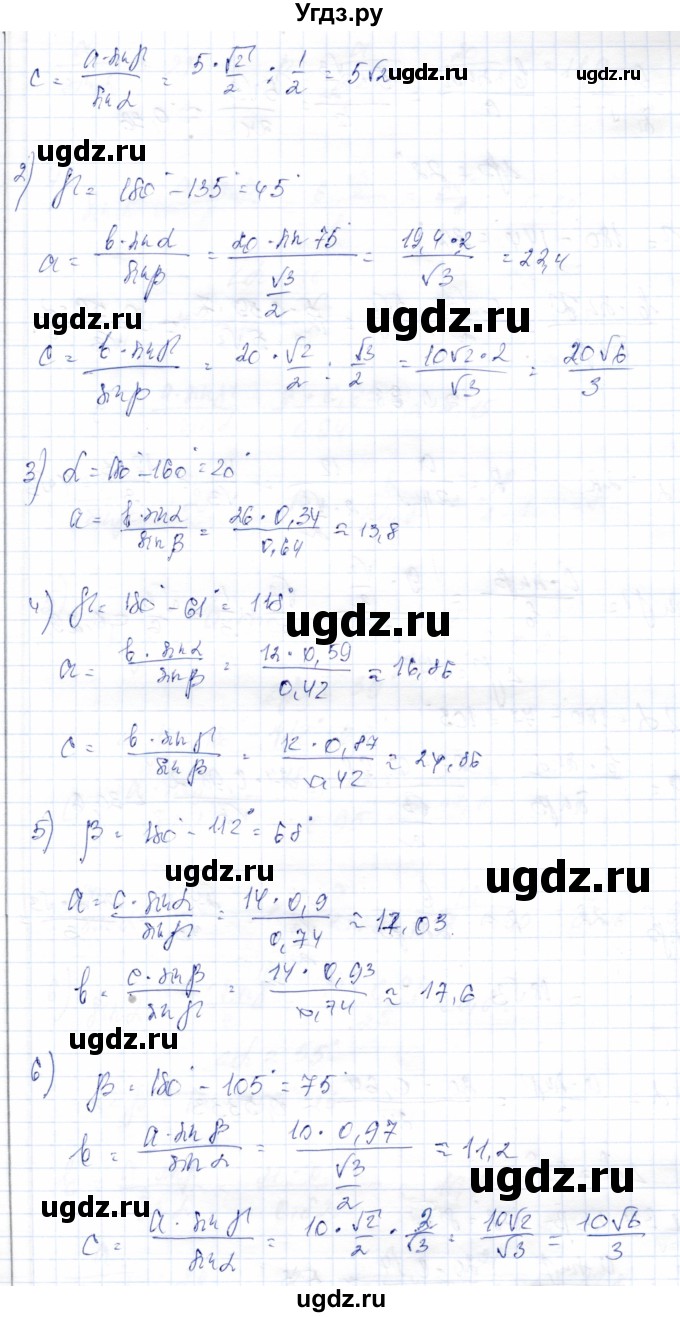 Угдз.ру
c = a·sinγ / sinα = 5·√2/2 : 1/2 = 5√2
ugdz.ru
ugdz.ru
ugdz.ru
2) γ = 180° - 135° = 45°
a = b·sinα / sinβ = 20·sin 75° / (√3/2) = 19,4·2 / √3 = 22,4
ugdz.ru
ugdz.ru
c = b·sinγ / sinβ = 20·√2/2 : √3/2 = 10√2·2 / √3 = 20√6 / 3
ugdz.ru
3) α = 180° - 160° = 20°
ugdz.ru
a = b·sinα / sinβ = 26·0,34 / 0,64 ≈ 13,8
4) γ = 180° - 61° = 118°
ugdz.ru
a = b·sinα / sinβ = 12·0,59 / 0,42 ≈ 16,86
ugdz.ru
c = b·sinγ / sinβ = 12·0,87 / 0,42 ≈ 24,86
5) β = 180° - 112° = 68°
ugdz.ru
ugdz.ru
a = c·sinα / sinγ = 14·0,9 / 0,74 ≈ 17,03.
b = c·sinβ / sinγ = 14·0,93 / 0,74 ≈ 17,6
ugdz.ru
6) β = 180° - 105° = 75°
b = a·sinβ / sinα = 10·0,97 / (√3/2) ≈ 11,2
ugdz.ru
ugdz.ru
c = a·sinγ / sinα = 10·√2/2·2/√3 = 10√2 / √3 = 10√6 / 3
ugdz.ru